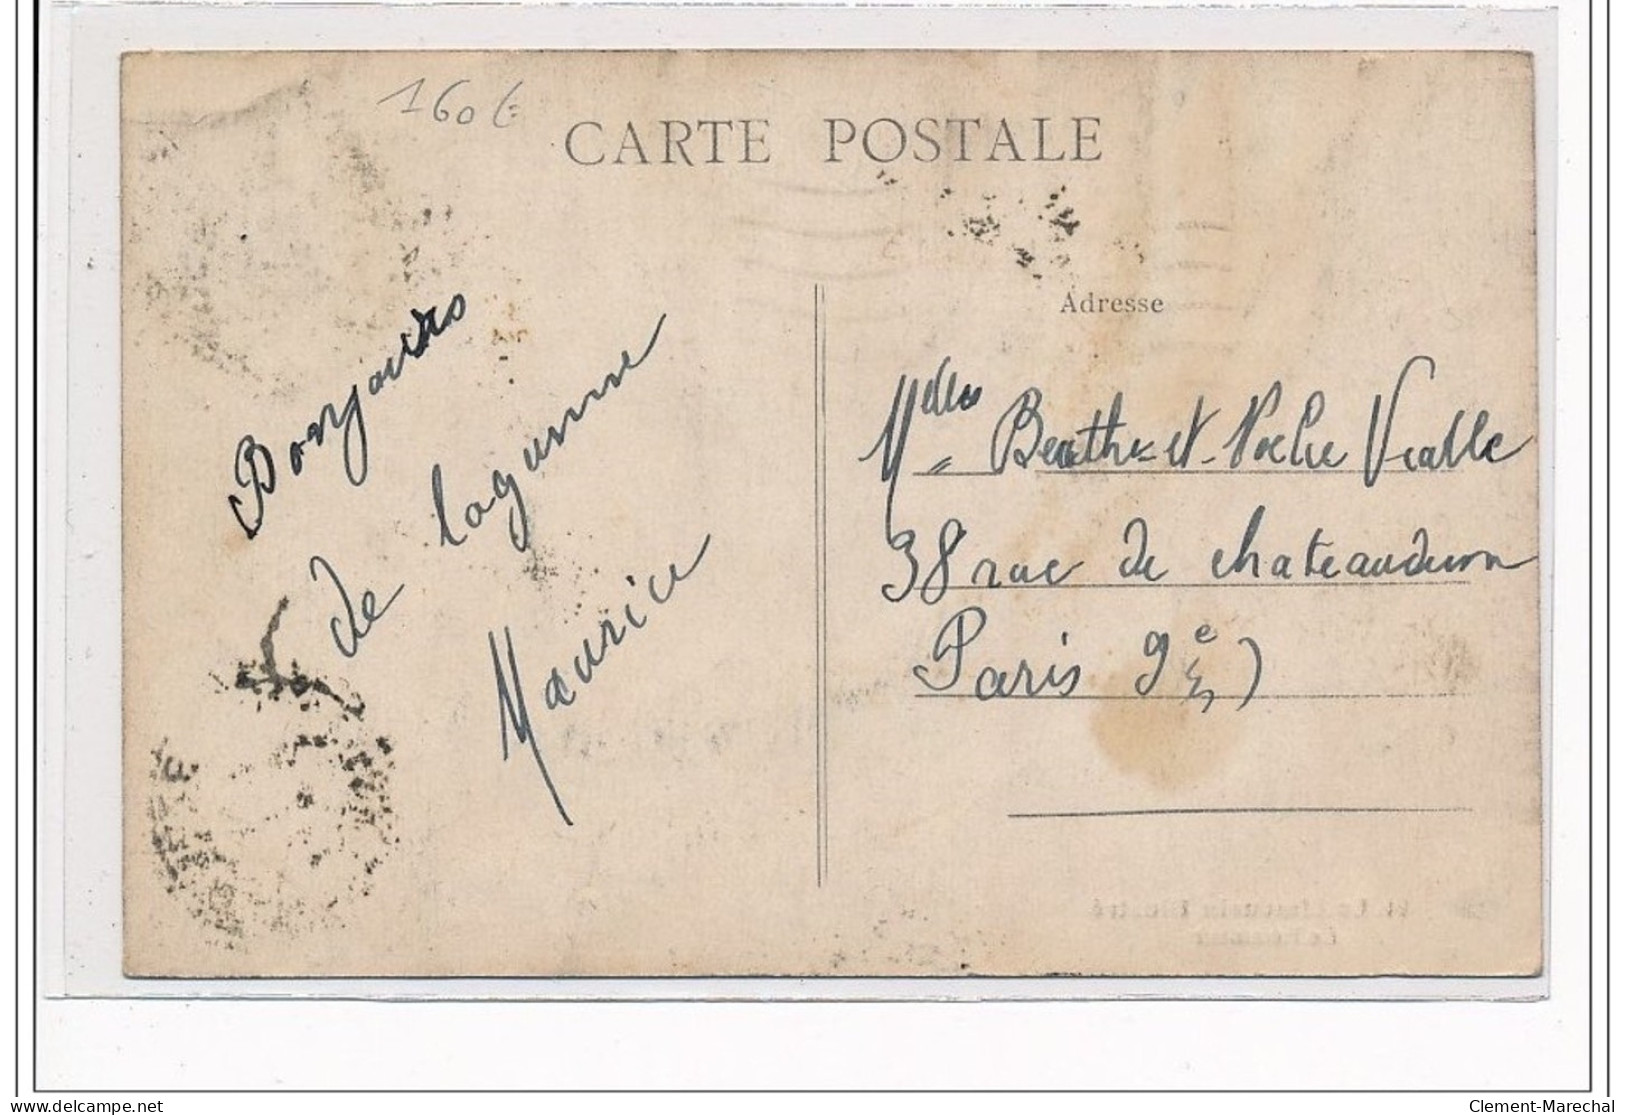 160 €
CARTE POSTALE
Adresse
Bonjours
de lagunne
Maurice
Mdelles Berthe et Viable
38 rue de chateaudun
Paris 9e
delcampe.net
Clement-Marechal